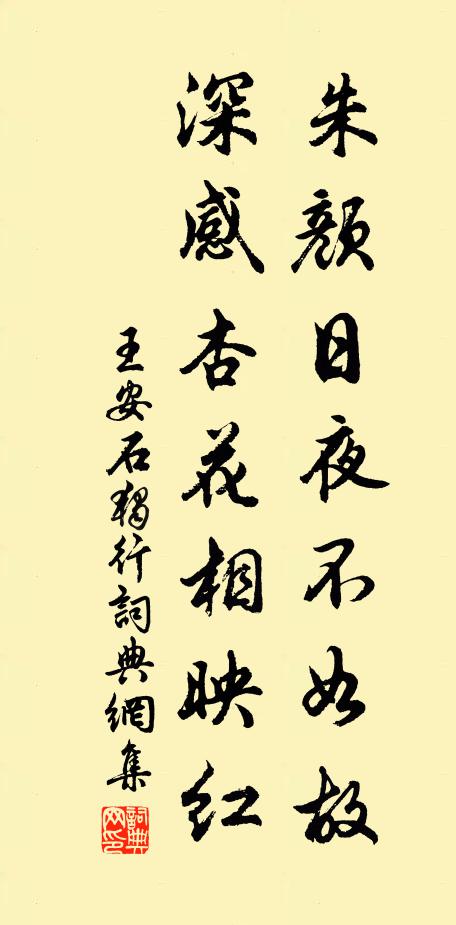 朱颜日夜不如故
深感杏花相映红
王安石独行詞典網集
詞典网印